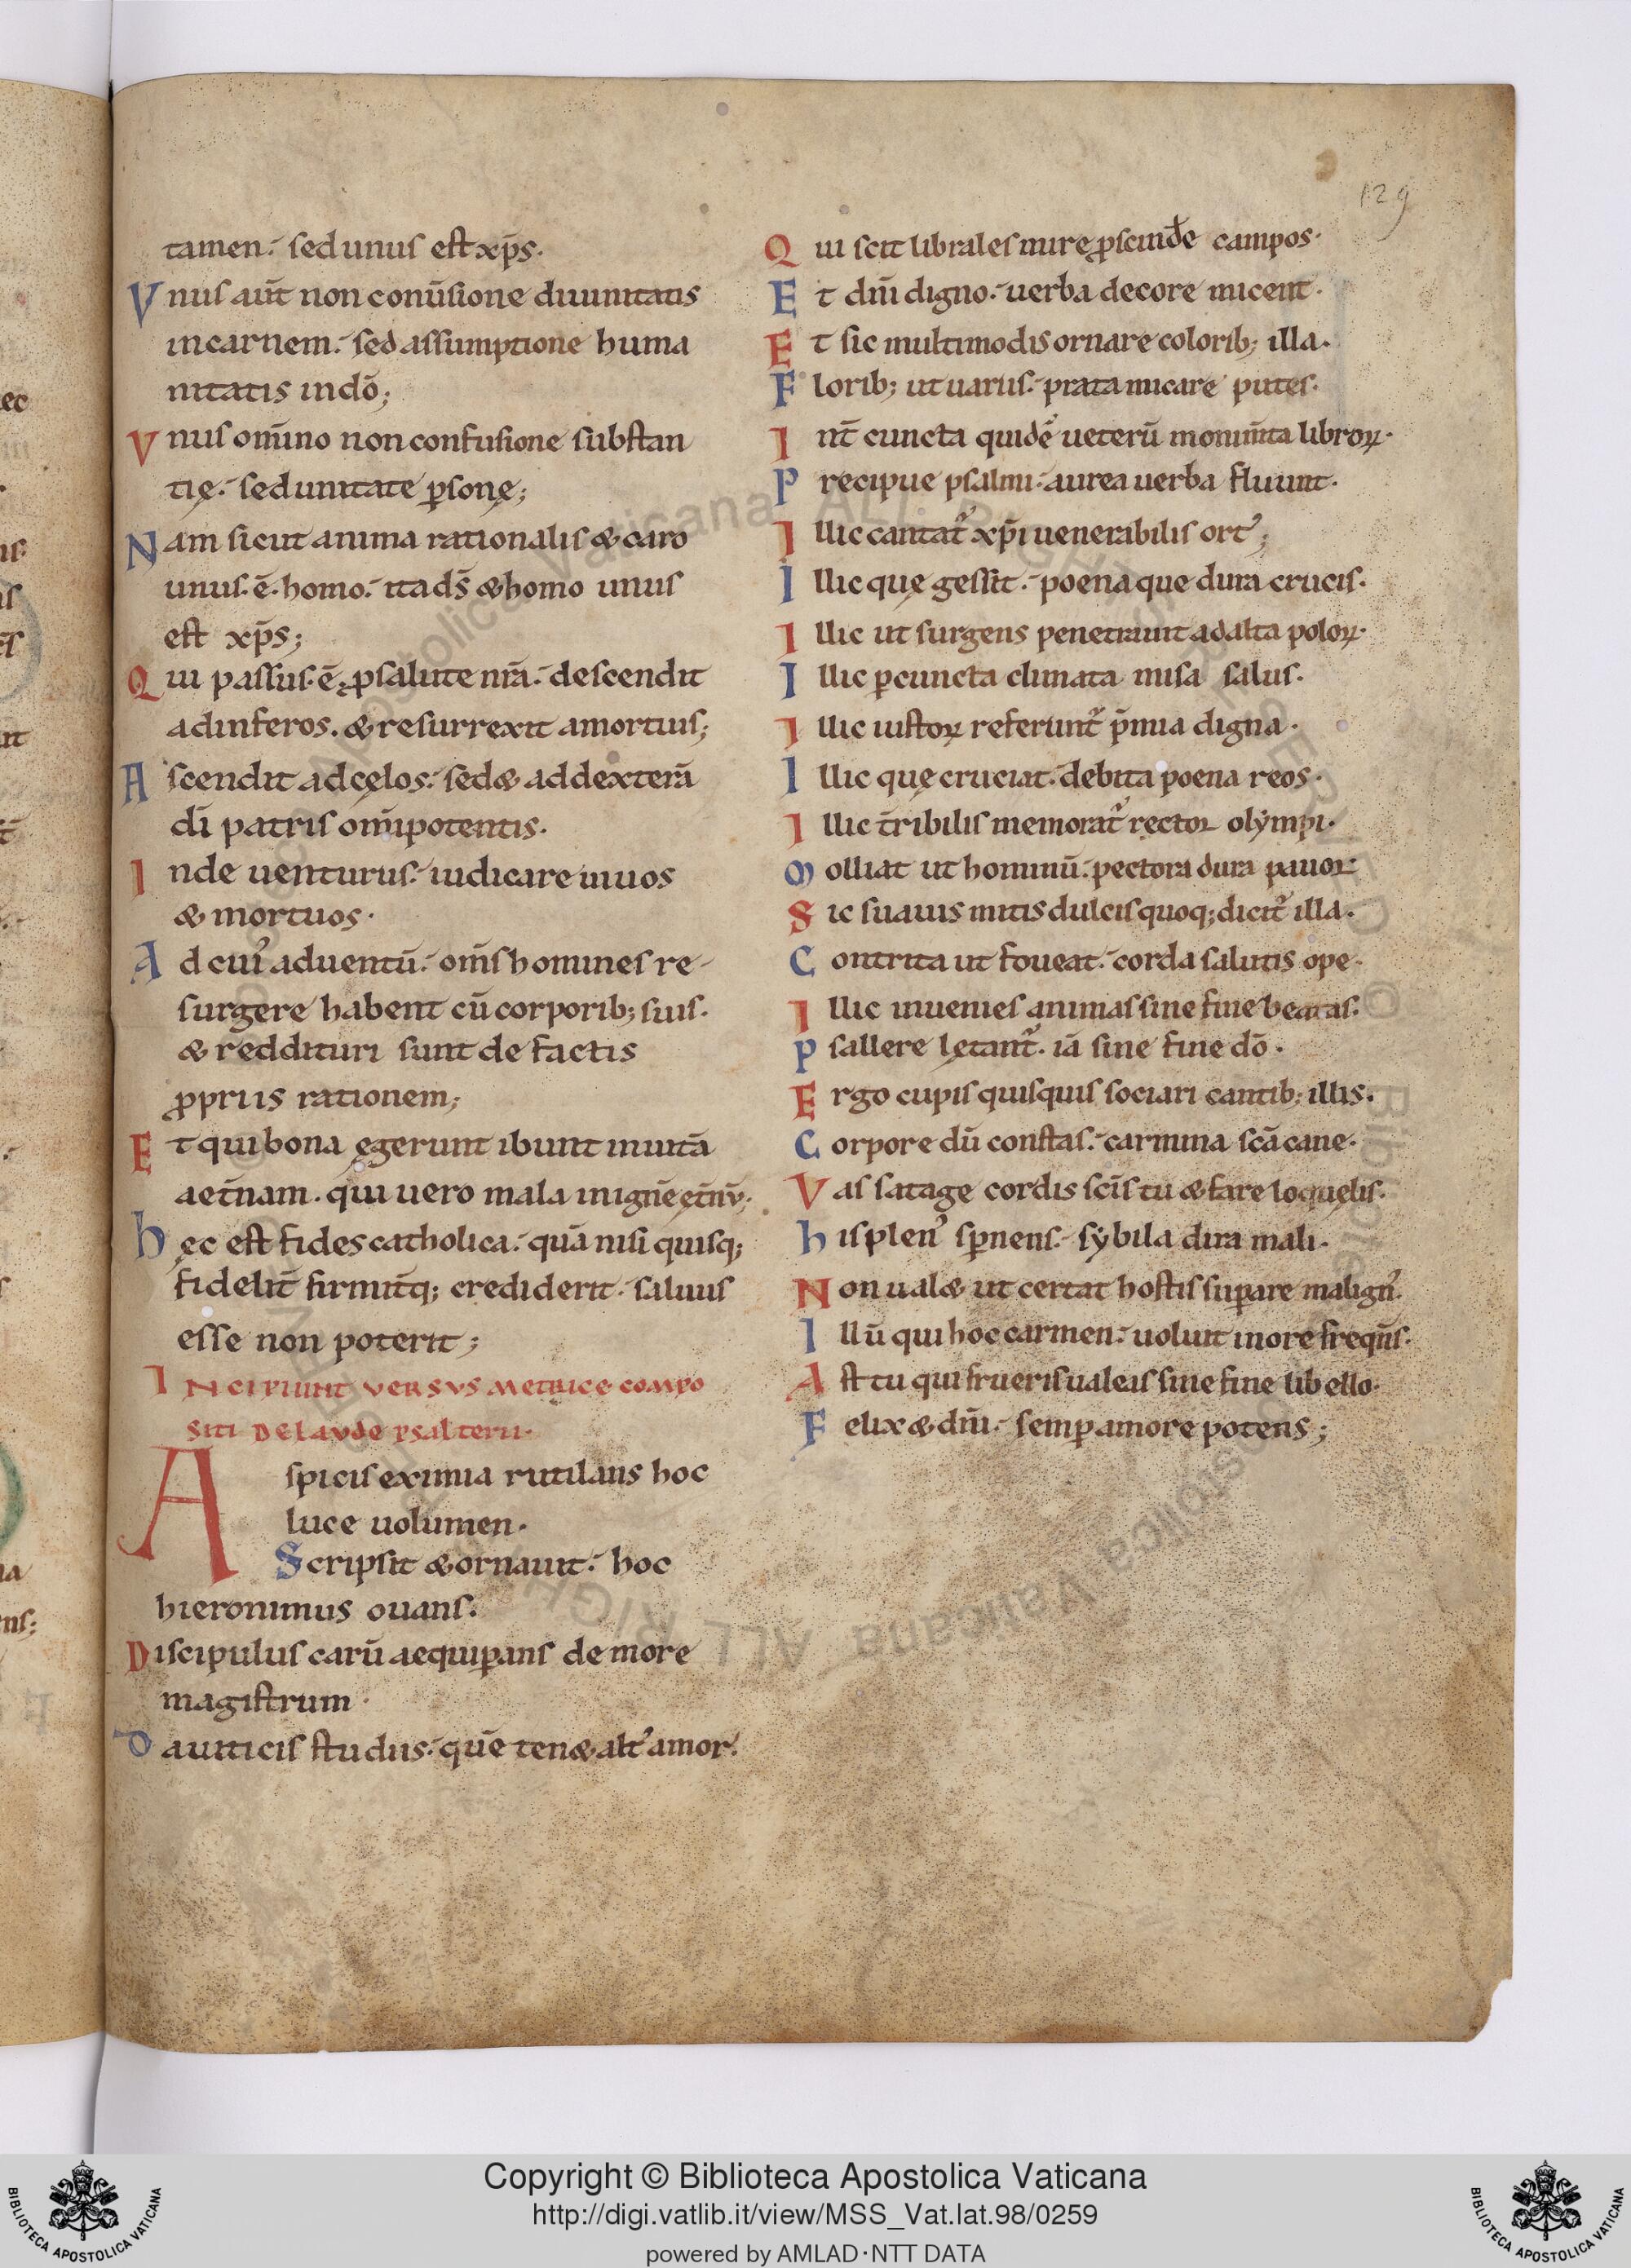 129
tamen. sed unus est xp̄s.
Vnus aūt non conūsione diuinitatis
in carnem. sed assumptione huma
nitatis in dō;
Vnus om̄ino non confusione substan
tię. sed unitate ꝑsonę;
Nam sicut anima rationalis & caro
unus. ē. homo. ita ds̄ & homo unus
est xp̄s;
Qui passus. ē. ꝓ salute nr̄a. descendit
ad inferos. & resurrexit a mortuis;
Ascendit ad cęlos. sed& ad dexterā
dī patris om̄ipotentis.
Inde uenturus. iudicare uiuos
& mortuos.
Ad cui᾽ aduentū. om̄s homines re-
surgere habent cū corporib; suis.
& reddituri sunt de factis
ꝓpriis rationem;
Et qui bona ęgerunt ibunt in uitā
aet̄nam. qui uero mala in ignē ęt̄nū;
Hęc est fides catholica. quā nisi quisq;
fidelit̄ firmit̄q; crediderit. saluus
esse non poterit;
INCIPIUNT VERSVS METRICE COMPO
SITI DE LAVDE PSALTERII.
Aspicis eximia rutilans hoc
luce uolumen.
Scripsit & ornauit. hoc
hieronimus ouans.
Discipulus carū aequiꝑans de more
magistrum.
Dauiticis studiis. quē ten& alt᾽ amor.
Qui scit librales mire ꝓscindē campos.
Et dm̄ digno. uerba decore micent.
Et sic multimodis ornare colorib; illa.
Florib; ut uariis. prata micare putes.
Int̄ cuncta quidē ueterū monum̄ta libroꝝ.
Precipue psalmi. aurea uerba fluunt.
Illic cantat᾽ xp̄i uenerabilis ort᾽;
Illic quę gessit. poenaque dura crucis.
Illic ut surgens penetrauit ad alta poloꝝ.
Illic ꝑ cuncta climata missa salus.
Illic iustoꝝ referunt᾽ p̄mia digna.
Illic quę cruciat. debita poena reos.
Illic t̄ribilis memorat᾽ rector olẏmpi.
Molliat ut hominū. pectora dura pauor.
Sic suauis mitis dulcis quoq; dicit᾽ illa.
Contrita ut foueat. corda salutis ope.
Illic inuenies animas sine fine beatas.
Psallere lętant᾽. iā sine fine dō.
Ergo cupis quisquis sociari cantib; illis.
Corpore dū constas. carmina scā cane.
Vas satage cordis scīs tu & fare loquęlis.
His plen᾽ sꝑnens. sẏbila dira mali.
Non ual& ut certat hostis suꝑare malign᾽.
Illū qui hoc carmen. uoluit in ore freqn̄s.
Ast tu qui frueris ualeas sine fine libello.
Felix & dm̄. semꝑ amore potens;
Copyright © Biblioteca Apostolica Vaticana
http://digi.vatlib.it/view/MSS_Vat.lat.98/0259
powered by AMLAD·NTT DATA
BIBLIOTECA APOSTOLICA VATICANA
BIBLIOTECA APOSTOLICA VATICANA